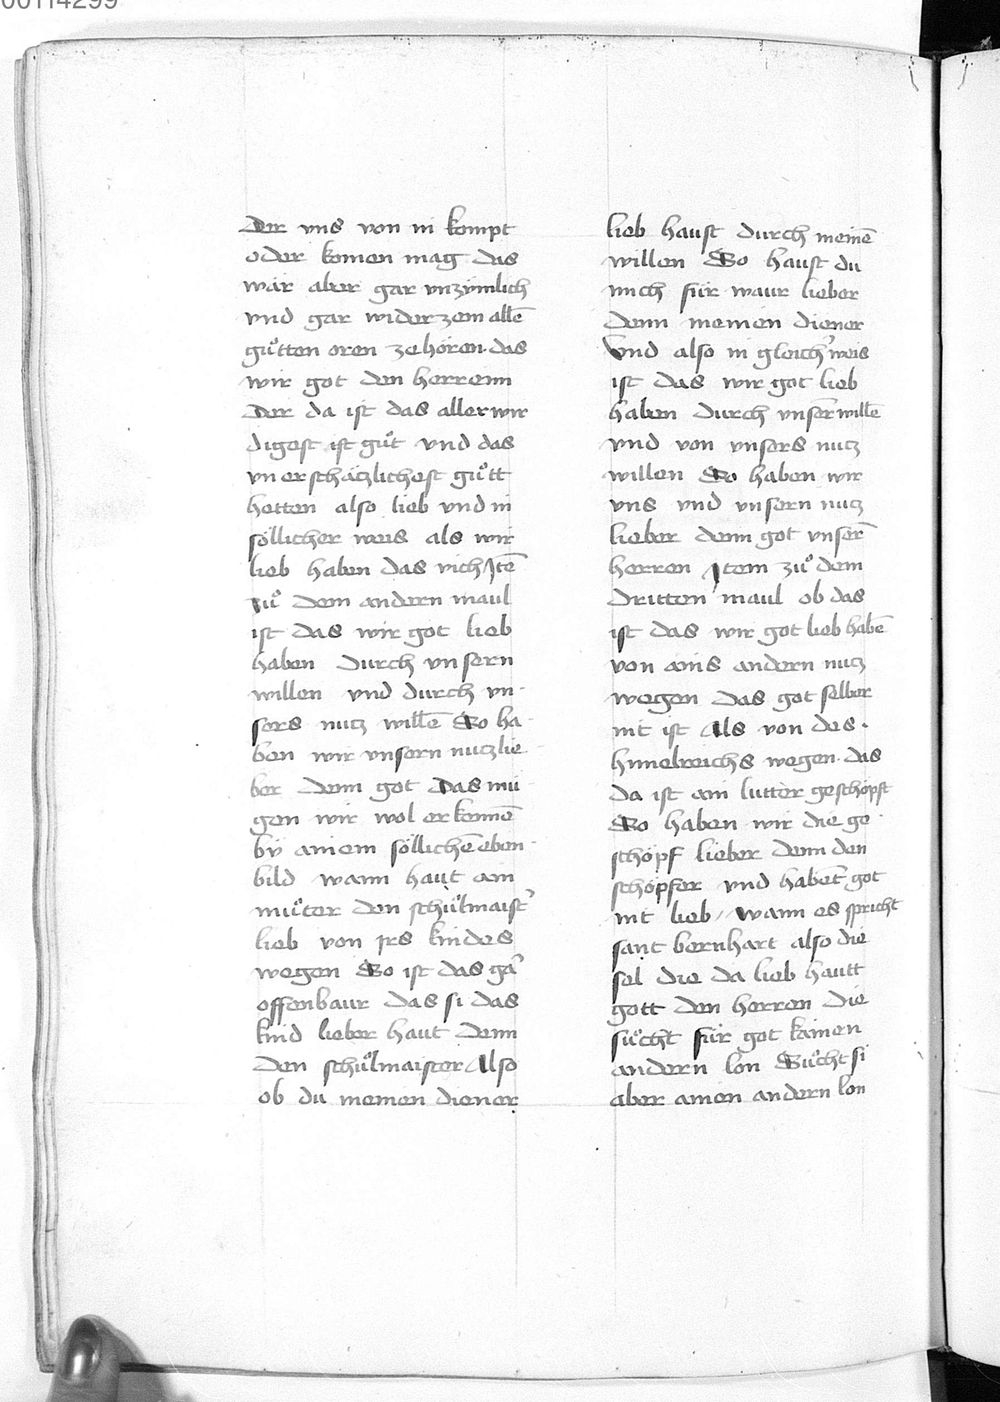 00114299
Der vns von in kompt
oder komen mag das
wär aber gar vnzÿmlich
vnd gar widerzem allē
guͦtten oren ze hören· das
wir got den herrenn
Der da ist das aller wir
digest ist guͦt vnd das
vnerschätzlichest guͦtt
hetten also lieb vnd in
söllicher weis als wir
lieb haben das vich Jtē
zuͦ dem andern maul
ist das wir got lieb
haben durch vnsern
willen vnd durch vn-
sers nutz willē So ha-
ben wir vnsern nutz lie-
ber denn got Das mü-
gen wir wol erkennē
bÿ ainem söllichē eben-
bild wann haut ain
muͦter den schuͦlmaist᾿
lieb von jrs kindes
wegen So ist das ga᾿
offenbaur das si das
kind lieber haut denn
den schuͦlmaister Also
ob du meinen diener
lieb haust durch meinē
willen So haust du
mich für waur lieber
denn meinen diener
Vnd also in gleich᾿ weis
ist das wir got lieb
haben durch vnser willē
vnd von vnsers nutz
willen So haben wir
vns vnd vnsern nutz
lieber denn got vnserē
herren Jtem zuͦ dem
dritten maul ob das
ist das wir got lieb habē
von ains andern nutz
wegen das got selber
nit ist Als von des·
himelreichs wegen· das
da ist ain lutter geschöpft
So haben wir die ge-
schöpf lieber denn den
schöpfer vnd haben got
nit lieb / wann es spricht
sant bernhart also die
sel die da lieb hautt
gott den herren die
suͦcht für got kainen
andern lon Suͦcht si
aber ainen andern lon